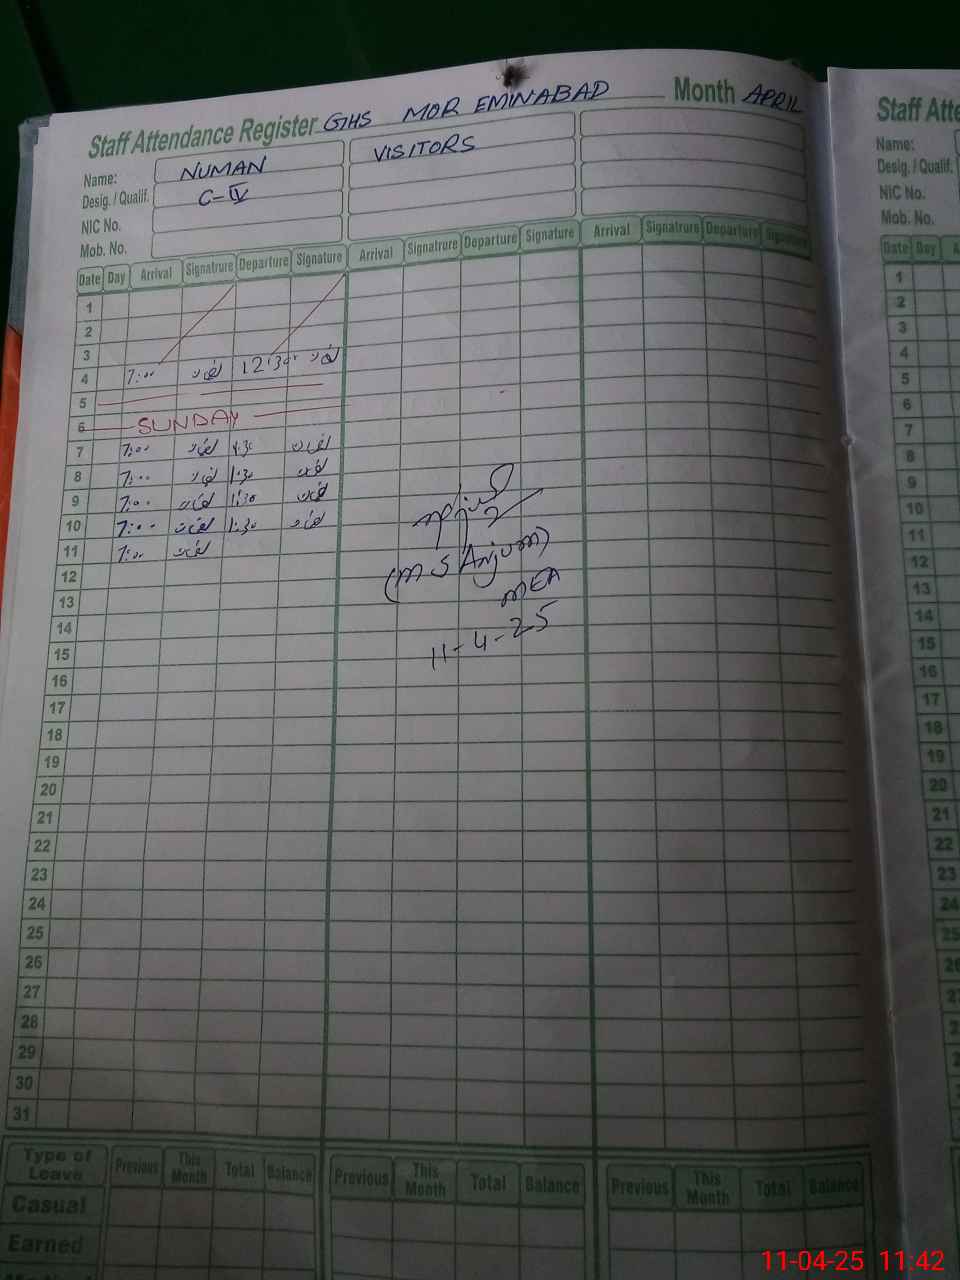 Staff Attendance Register GHS MOR EMINABAD Month APRIL
Name: NUMAN VISITORS
Desig. / Qualif. C-IV
NIC No.
Mob. No.
Date Day Arrival Signatrure Departure Signature Arrival Signatrure Departure Signature Arrival Signatrure Departure Signature
1
2
3
4 7:00 12:30
5
6 SUNDAY
7 7:00 1:30
8 7:00 1:30
9 7:00 1:30
10 7:00 1:30
11 7:00
(M S Anjum)
MEA
11-4-25
12
13
14
15
16
17
18
19
20
21
22
23
24
25
26
27
28
29
30
31
Type of Leave Previous This Month Total Balance Previous This Month Total Balance Previous This Month Total Balance
Casual
Earned
Staff Atte
Name:
Desig. / Qualif.
NIC No.
Mob. No.
Date Day A
1
2
3
4
5
6
7
8
9
10
11
12
13
14
15
16
17
18
19
20
21
22
23
24
25
26
11-04-25 11:42